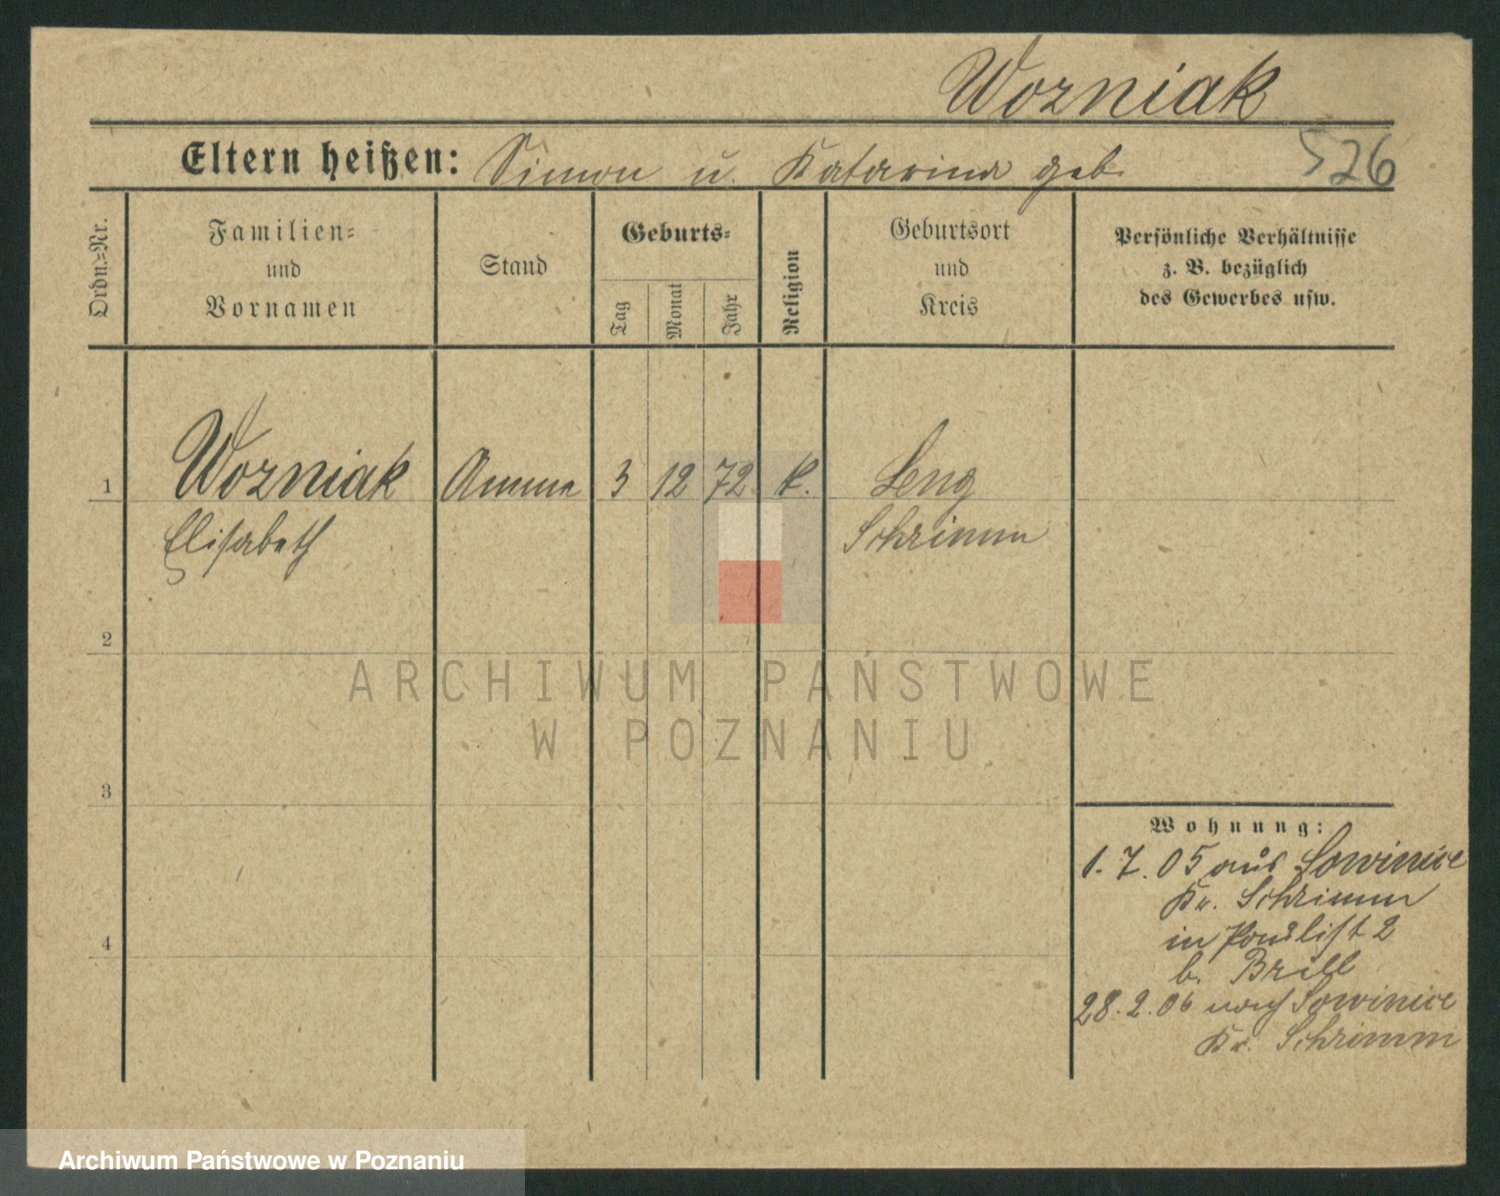 Wozniak
Eltern heißen: Simon u. Katarina geb.
526
Ordn.-Nr.
Familien-
und
Vornamen
Stand
Geburts-
Tag
Monat
Jahr
Religion
Geburtsort
und
Kreis
Persönliche Verhältnisse
z. B. bezüglich
des Gewerbes usw.
1 Wozniak Amme 3 12 72 k. Leng
Elisabeth Schrimm
2
ARCHIWUM PAŃSTWOWE
W POZNANIU
3
Wohnung:
1.7.05 aus Sowinice
Kr. Schrimm
in 2
4
b. Brill
28.2.06 nach Sowinice
Kr. Schrimm
Archiwum Państwowe w Poznaniu